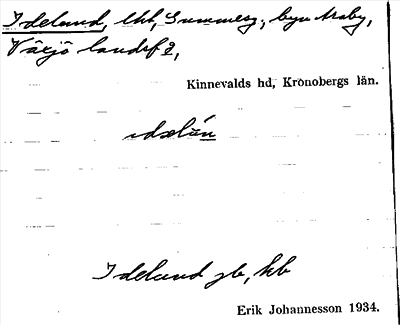 Idelund, lht, Gummesg., byn Araby,
Växjö landsf 2,
Kinnevalds hd, Kronobergs län.
idelún
Idelund jb, kb
Erik Johannesson 1934.